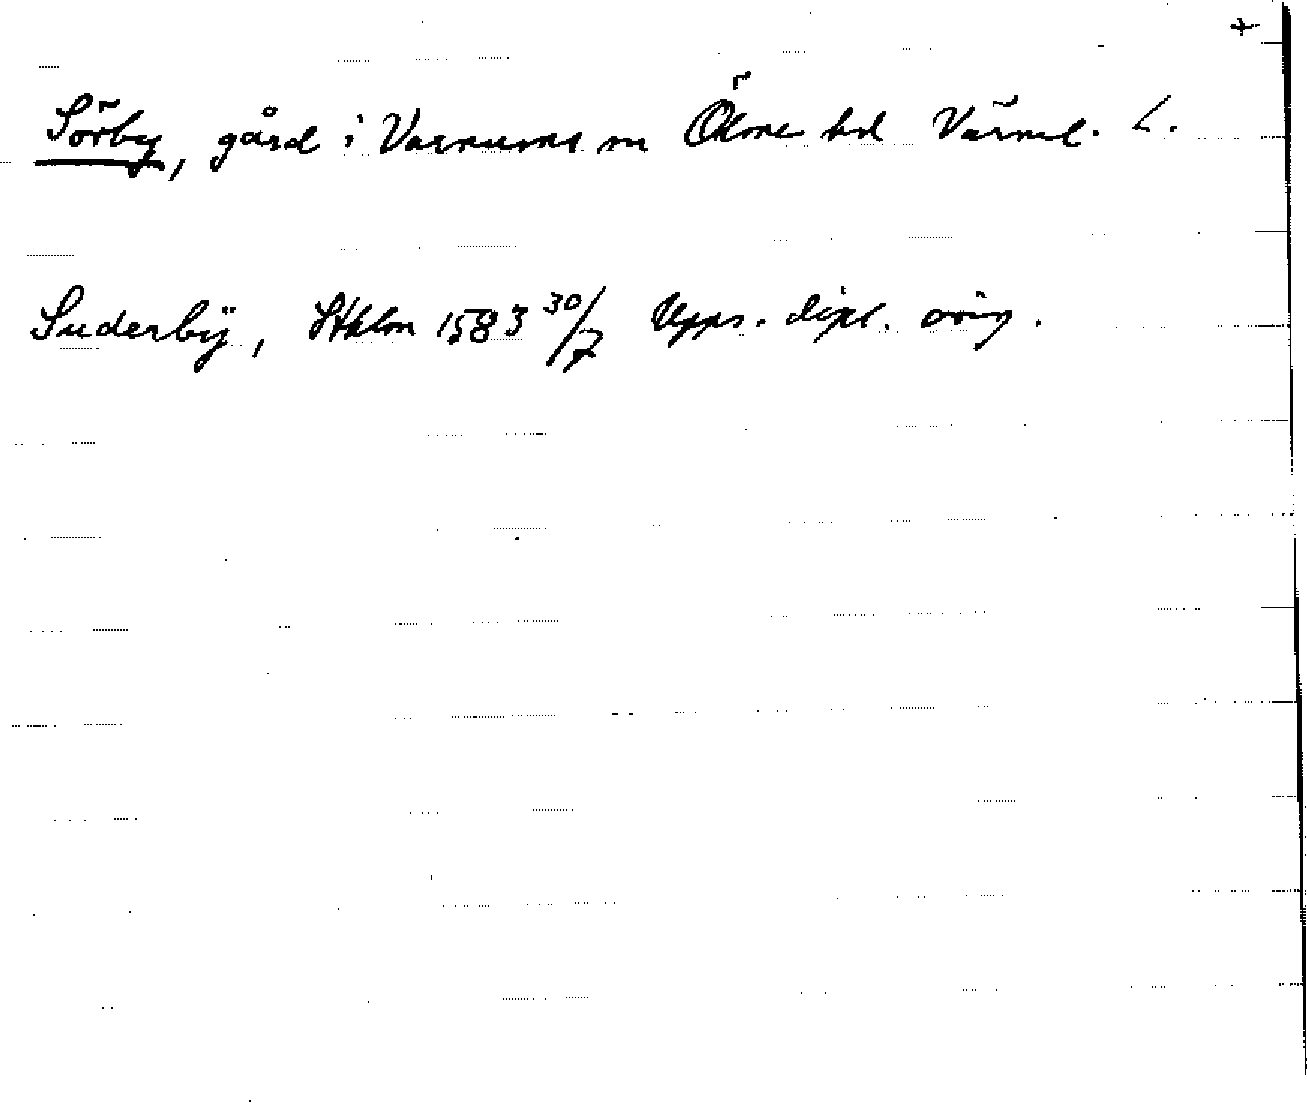 +
Sörby, gård i Varnums sn Ölme hd Värml. L.
Suderbÿ, Sthlm 1583 30/7 Upps. dipl. orig.